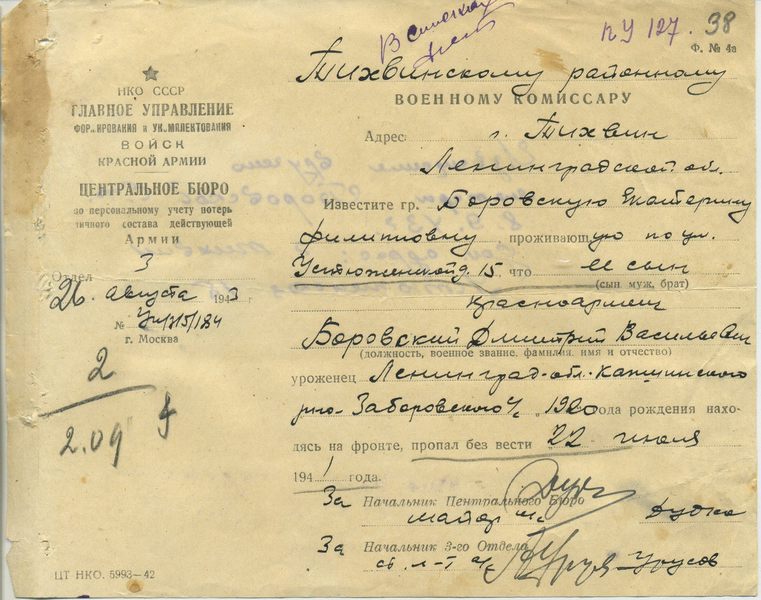 В
ПУ 127. 98
Ф. № 4а
НКО СССР
ГЛАВНОЕ УПРАВЛЕНИЕ
ФОРМИРОВАНИЯ и УКОМПЛЕКТОВАНИЯ
ВОЙСК
КРАСНОЙ АРМИИ
ЦЕНТРАЛЬНОЕ БЮРО
по персональному учету потерь
личного состава действующей
Армии
Отдел 3
26 августа 1943
№
г. Москва
2
2.09
Тихвинскому районному
ВОЕННОМУ КОМИССАРУ
Адрес: г. Тихвин
Ленинградской обл.
Известите гр. Боровскую Екатерину
Филипповну проживающую по ул.
Устюженской д. 15 что ее сын
(сын муж, брат)
Красноармеец
Боровский Дмитрий Васильевич
(должность, военное звание, фамилия, имя и отчество)
уроженец Ленинград. обл.
р-на Заборовского с/с, 1920 года рождения нахо-
дясь на фронте, пропал без вести 22 июля
1941 года.
За Начальник Центрального Бюро
майор Дудко
За Начальник 3-го Отдела
ст. л-т а/с Урусов
ЦТ НКО. 5993—42